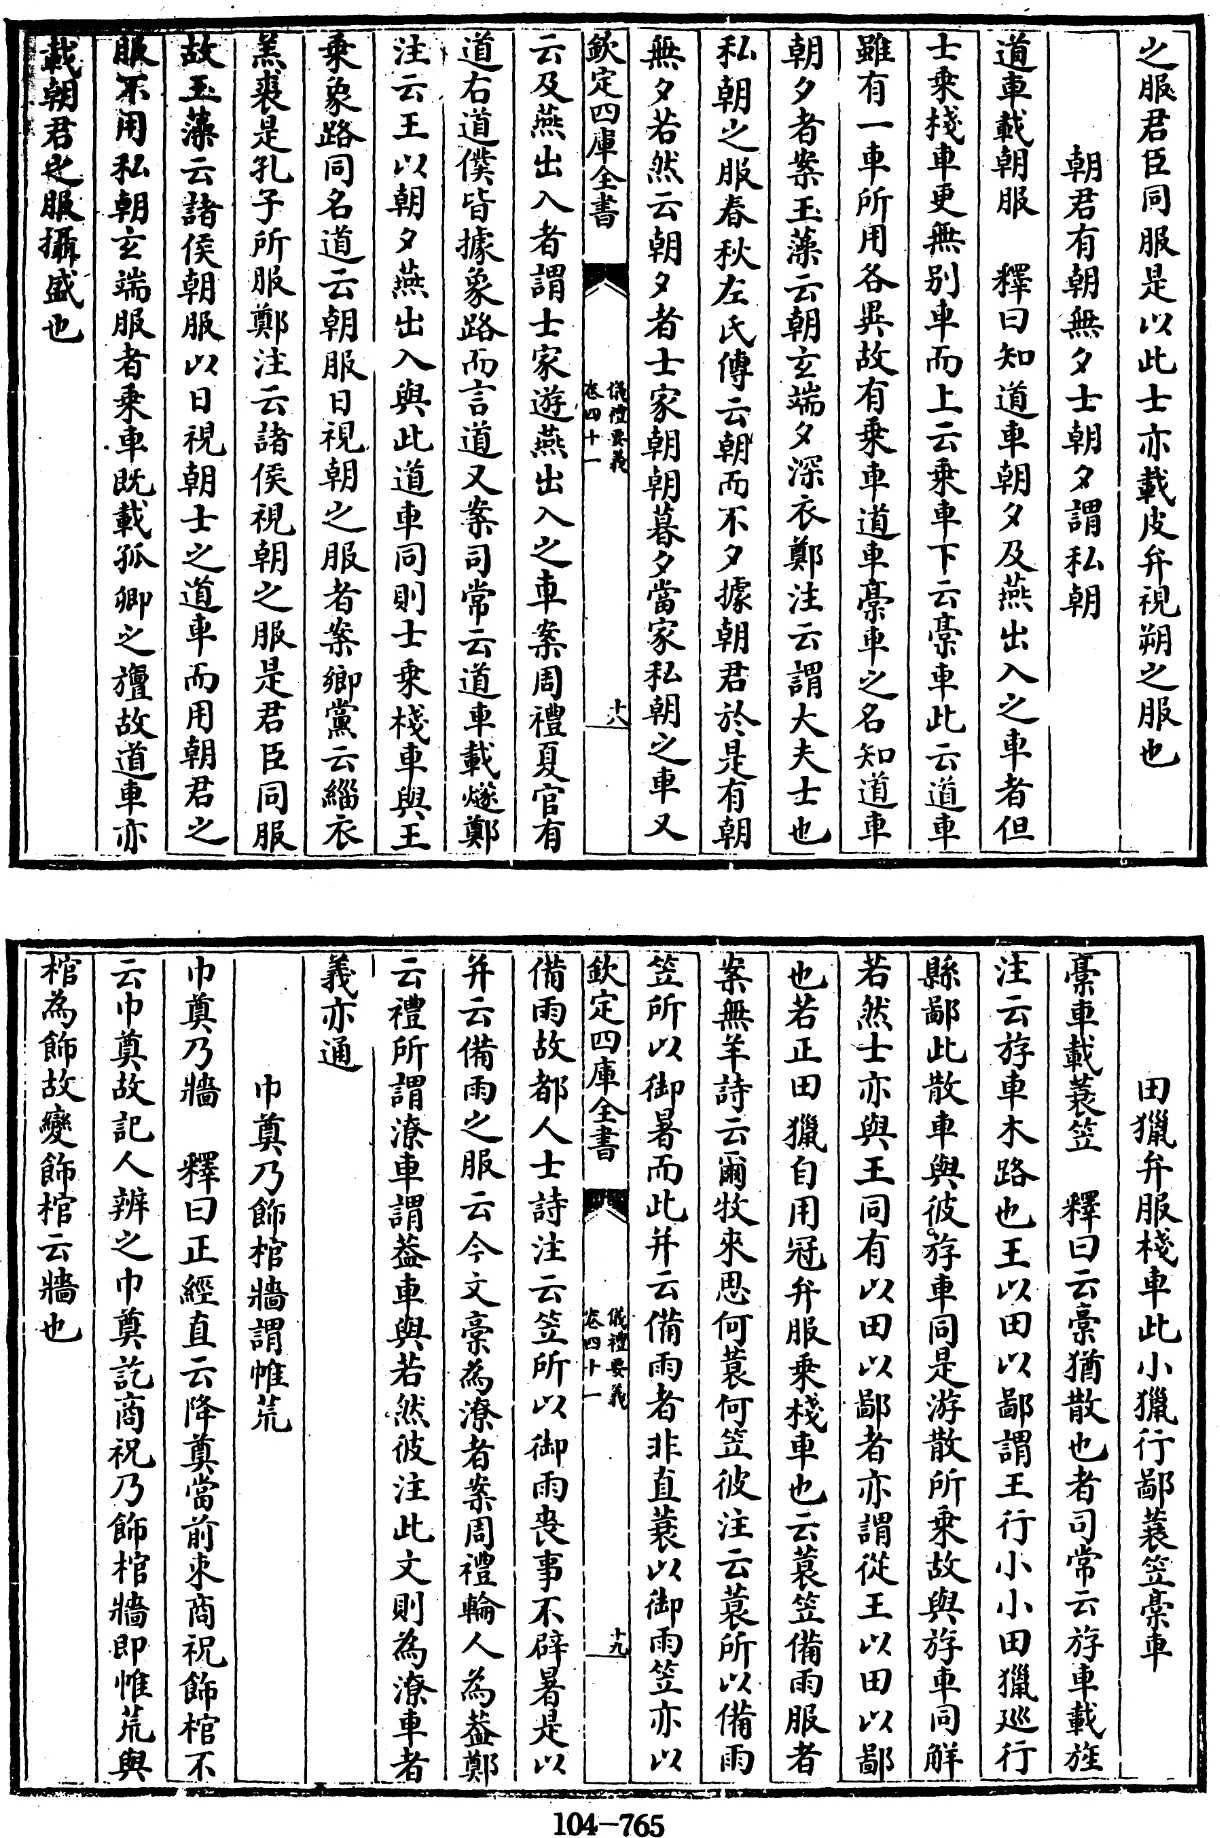 之服君臣同服是以此士亦載皮弁視朔之服也
朝君有朝無夕士朝夕謂私朝
道車載朝服　釋曰知道車朝夕及燕出入之車者但
士乘棧車更無別車而上云乘車下云稾車此云道車
雖有一車所用各異故有乘車道車稾車之名知道車
朝夕者案玉藻云朝玄端夕深衣鄭注云謂大夫士也
私朝之服春秋左氏傳云朝而不夕據朝君於是有朝
無夕若然云朝夕者士家朝朝暮夕當家私朝之車又
欽定四庫全書
儀禮要義
卷四十一
十八
云及燕出入者謂士家遊燕出入之車案周禮夏官有
道右道僕皆據象路而言道又案司常云道車載㒸鄭
注云王以朝夕燕出入與此道車同則士乘棧車與王
乘象路同名道云朝服日視朝之服者案鄉黨云緇衣
羔裘是孔子所服鄭注云諸侯視朝之服是君臣同服
故玉藻云諸侯朝服以日視朝士之道車而用朝君之
服不用私朝玄端服者乘車既載孤卿之旜故道車亦
載朝君之服攝盛也
田獵弁服棧車此小獵行鄙蓑笠稾車
稾車載蓑笠　釋曰云稾猶散也者司常云斿車載旌
注云斿車木路也王以田以鄙謂王行小小田獵巡行
縣鄙此散車與彼斿車同是游散所乘故與斿車同解
若然士亦與王同有以田以鄙者亦謂從王以田以鄙
也若正田獵自用冠弁服乘棧車也云蓑笠備雨服者
案無羊詩云爾牧來思何蓑何笠彼注云蓑所以備雨
笠所以御暑而此并云備雨者非直蓑以御雨笠亦以
欽定四庫全書
儀禮要義
卷四十一
十九
備雨故都人士詩注云笠所以御雨喪事不辟暑是以
并云備雨之服云今文稾為潦者案周禮輪人為蓋鄭
云禮所謂潦車謂蓋車與若然彼注此文則為潦車者
義亦通
巾奠乃飾棺牆謂帷荒
巾奠乃牆　釋曰正經直云降奠當前束商祝飾棺不
云巾奠故記人辨之巾奠訖商祝乃飾棺牆即帷荒與
棺為飾故變飾棺云牆也
104-765